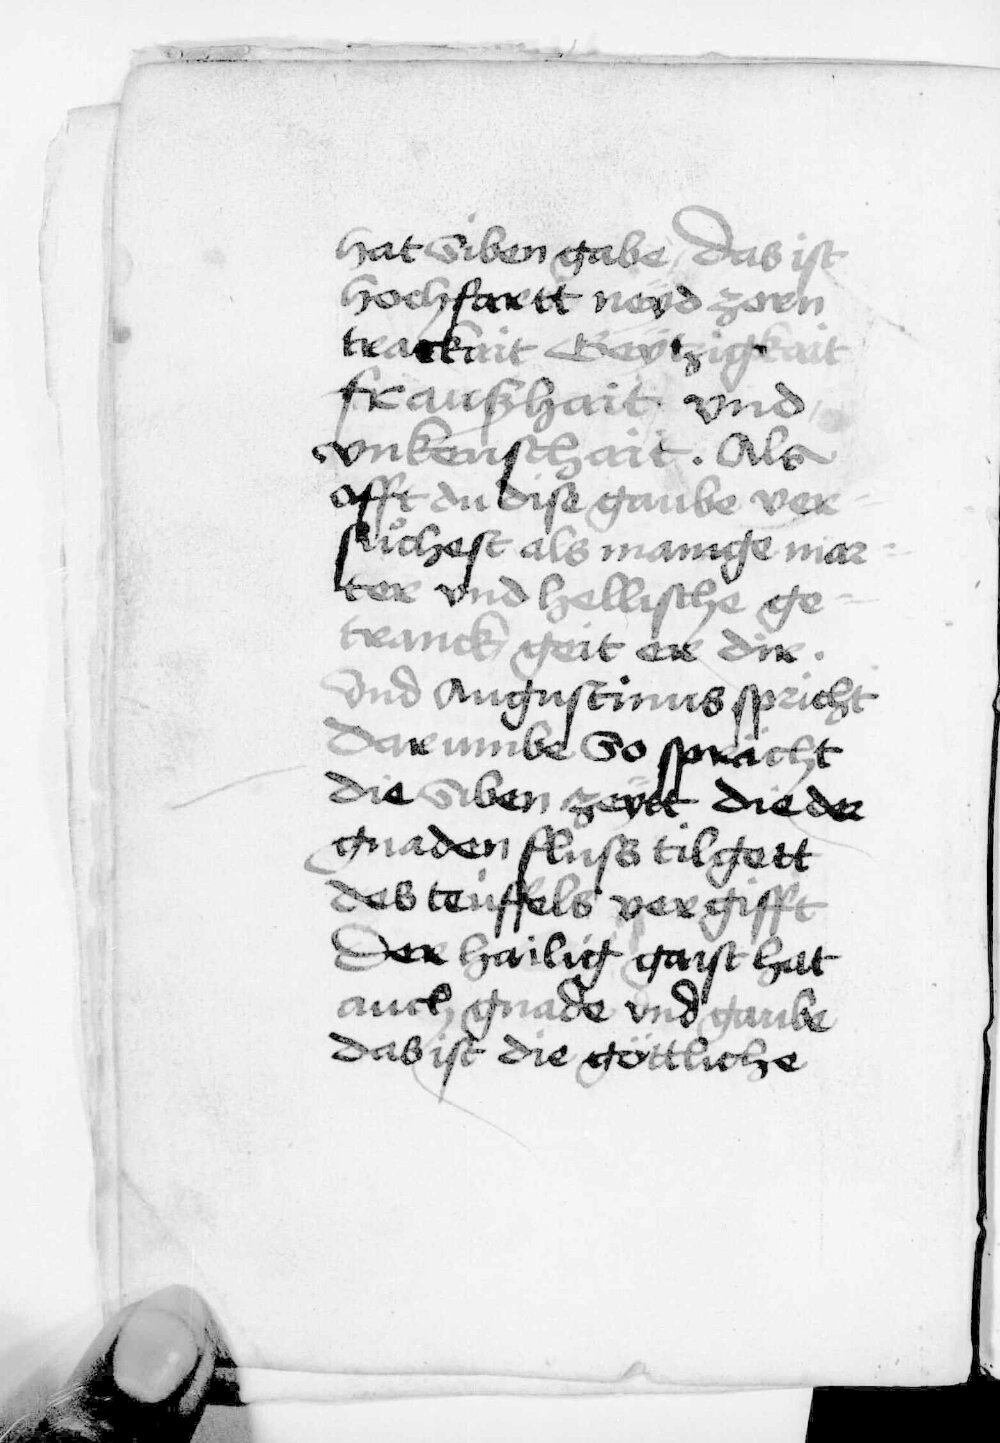 hat Siben gabe / das ist
hochfartt neÿd zorn
trackait Geÿtzigkait
frauszhait / vnd /
vnkeuschait . Als
offt du dise gaube ver-
sůchest als manige mar=
ter vnd hellische ge-
tranck geit er dir .
Vnd Augustinus spricht
Darumbe So sprächt
die Siben zeÿtt die der
gnaden fluss tilgett
des teuffels vergifft
Der hailig gaist hat
auch gnade vnd gaube
das ist die göttliche